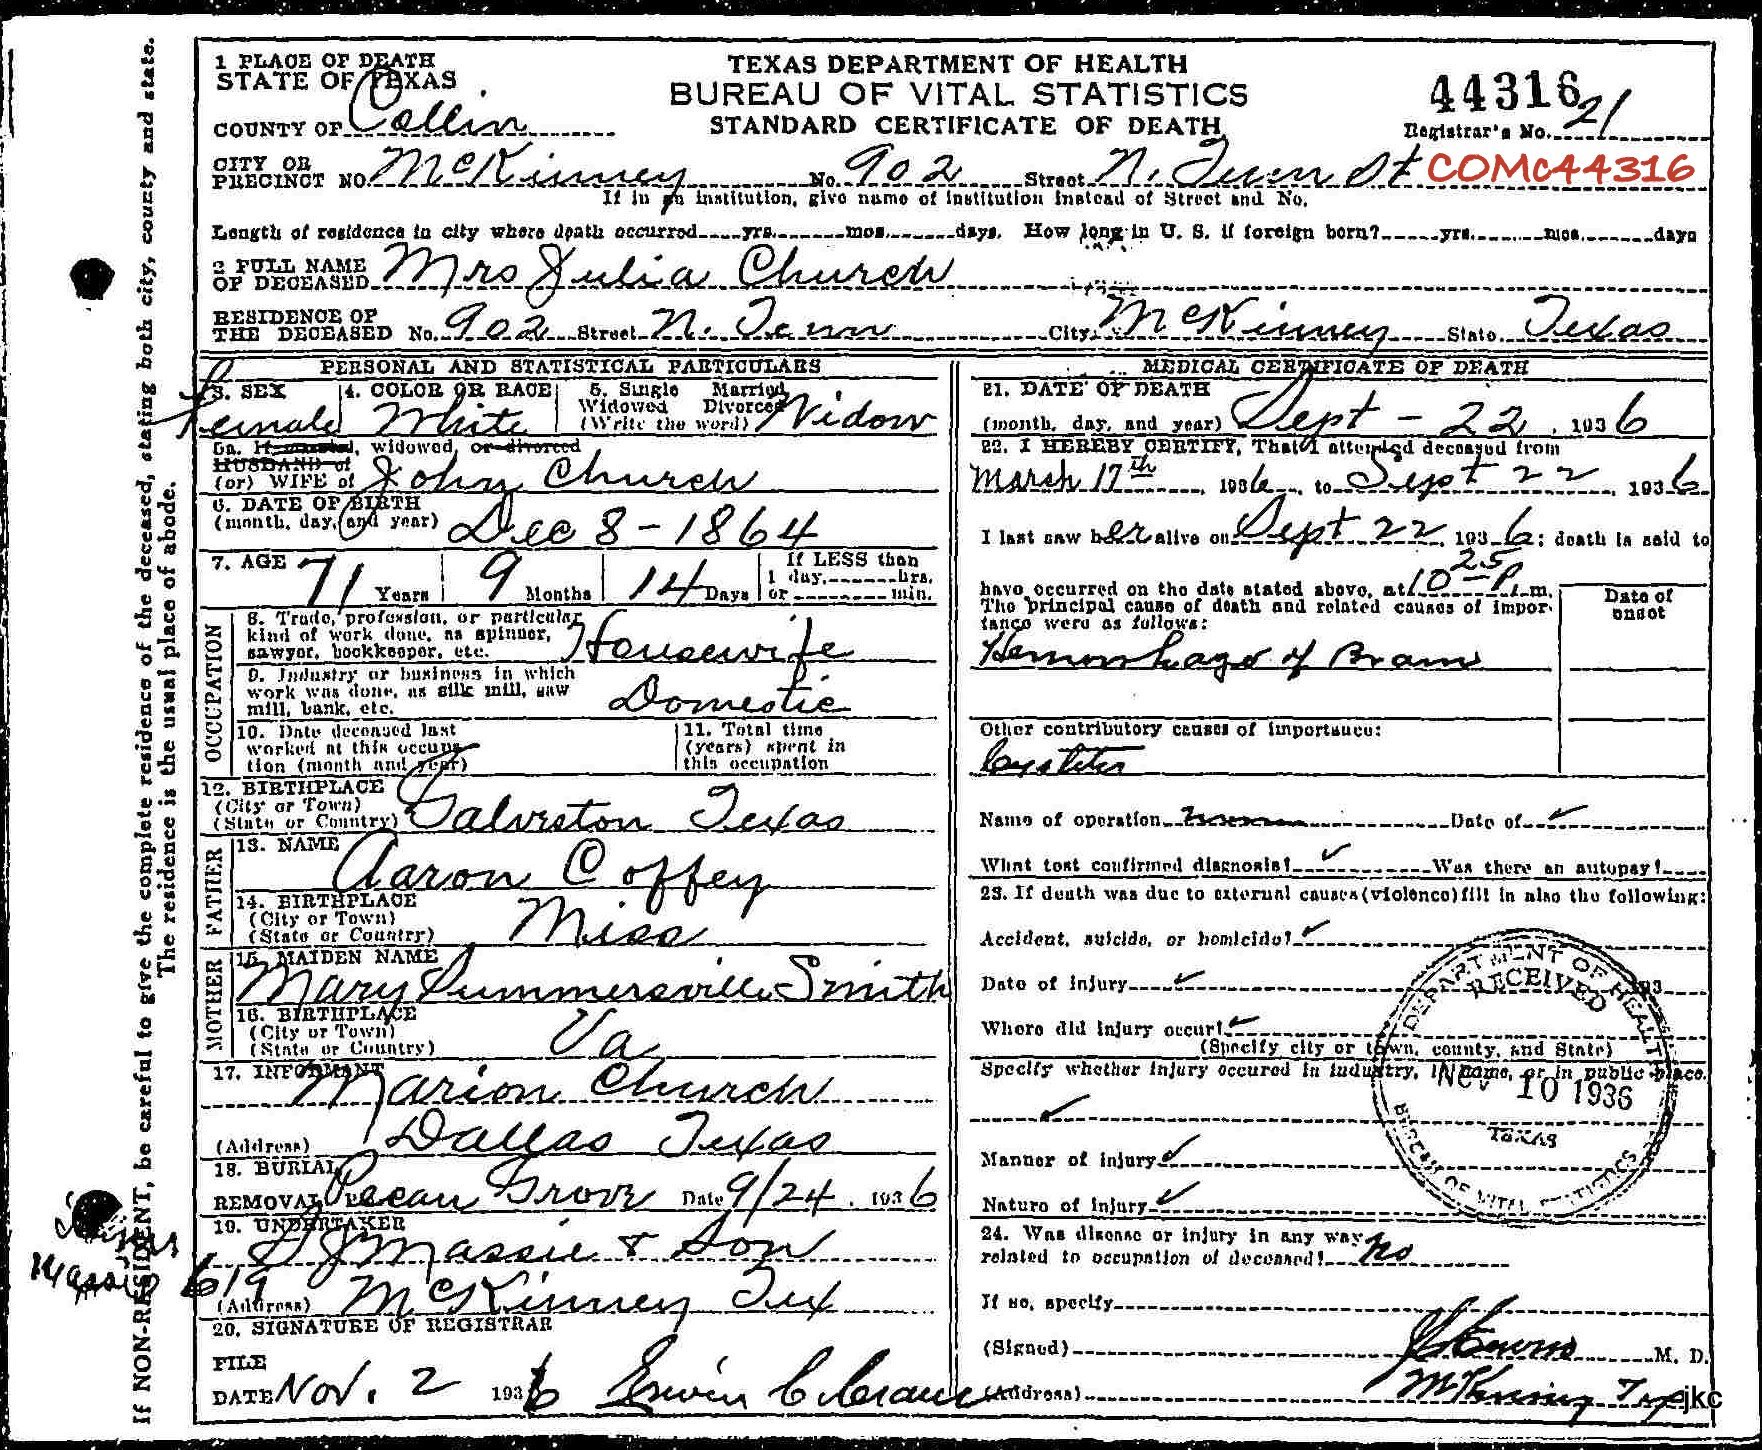 If NON-RESIDENT, be careful to give the complete residence of the deceased, stating both city, county and state.
The residence is the usual place of abode.
1 PLACE OF DEATH
STATE OF TEXAS
COUNTY OF Collin
TEXAS DEPARTMENT OF HEALTH
BUREAU OF VITAL STATISTICS
STANDARD CERTIFICATE OF DEATH
44316
Registrar's No. 21
CITY OR
PRECINCT NO. McKinney No. 902 Street N. Tenn St COMc44316
If in an institution, give name of institution instead of Street and No.
Length of residence in city where death occurred yrs. mos. days. How long in U. S. if foreign born? yrs. mos. days
2 FULL NAME
OF DECEASED Mrs Julia Church
RESIDENCE OF
THE DECEASED No. 902 Street N. Tenn City McKinney State Texas
PERSONAL AND STATISTICAL PARTICULARS
3. SEX Female
4. COLOR OR RACE White
5. Single Married
Widowed Divorced
(Write the word) Widow
5a. If married, widowed, or divorced
HUSBAND of
(or) WIFE of John Church
6. DATE OF BIRTH
(month, day, and year) Dec 8 - 1864
7. AGE 71 Years 9 Months 14 Days
If LESS than
1 day, hrs.
or min.
OCCUPATION
8. Trade, profession, or particular
kind of work done, as spinner,
sawyer, bookkeeper, etc. Housewife
9. Industry or business in which
work was done, as silk mill, saw
mill, bank, etc. Domestic
10. Date deceased last
worked at this occupa-
tion (month and year)
11. Total time
(years) spent in
this occupation
12. BIRTHPLACE
(City or Town)
(State or Country) Galveston Texas
FATHER
13. NAME Aaron Coffey
14. BIRTHPLACE
(City or Town)
(State or Country) Miss
MOTHER
15. MAIDEN NAME
Mary Summersville Smith
16. BIRTHPLACE
(City or Town)
(State or Country) Va
17. INFORMANT Marion Church
(Address) Dallas Texas
18. BURIAL
REMOVAL Pecan Grove Date 9/24, 1936
19. UNDERTAKER
S J Massie & Son
Massie 619
(Address) McKinney Tex
20. SIGNATURE OF REGISTRAR
FILE
DATE Nov. 2 1936
MEDICAL CERTIFICATE OF DEATH
21. DATE OF DEATH
(month, day, and year) Sept - 22, 1936
22. I HEREBY CERTIFY, That I attended deceased from
March 17th, 1936, to Sept 22, 1936
I last saw her alive on Sept 22, 1936; death is said to
have occurred on the date stated above, at 10 25 P. m.
The principal cause of death and related causes of impor-
tance were as follows:
Date of
onset
Hemorrhage of Brain
Other contributory causes of importance:
Cystitis
Name of operation Date of ✓
What test confirmed diagnosis? ✓ Was there an autopsy?
23. If death was due to external causes (violence) fill in also the following:
Accident, suicide, or homicide? ✓
Date of injury ✓ 193
Where did injury occur? ✓
(Specify city or town, county, and State)
Specify whether injury occured in industry, in home, or in public place.
✓
Manner of injury ✓
Nature of injury ✓
DEPARTMENT OF HEALTH
RECEIVED
NOV 10 1936
TEXAS
BUREAU OF VITAL STATISTICS
24. Was disease or injury in any way
related to occupation of deceased? no
If so, specify
(Signed) M. D.
(Address) McKinney Tex
jkc